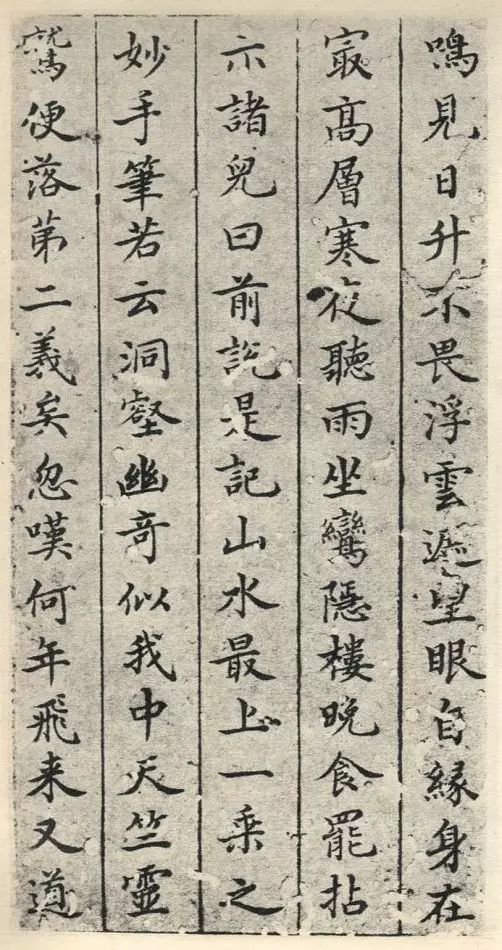 鳴見日升不畏浮雲遮望眼自緣身在
冣高層寒夜聽雨坐鸞隱樓晚食罷拈
示諸兒曰前説是記山水最上一乘之
妙手筆若云洞壑幽奇似我中天竺靈
鷲便落苐二義矣忽嘆何年飛来又道